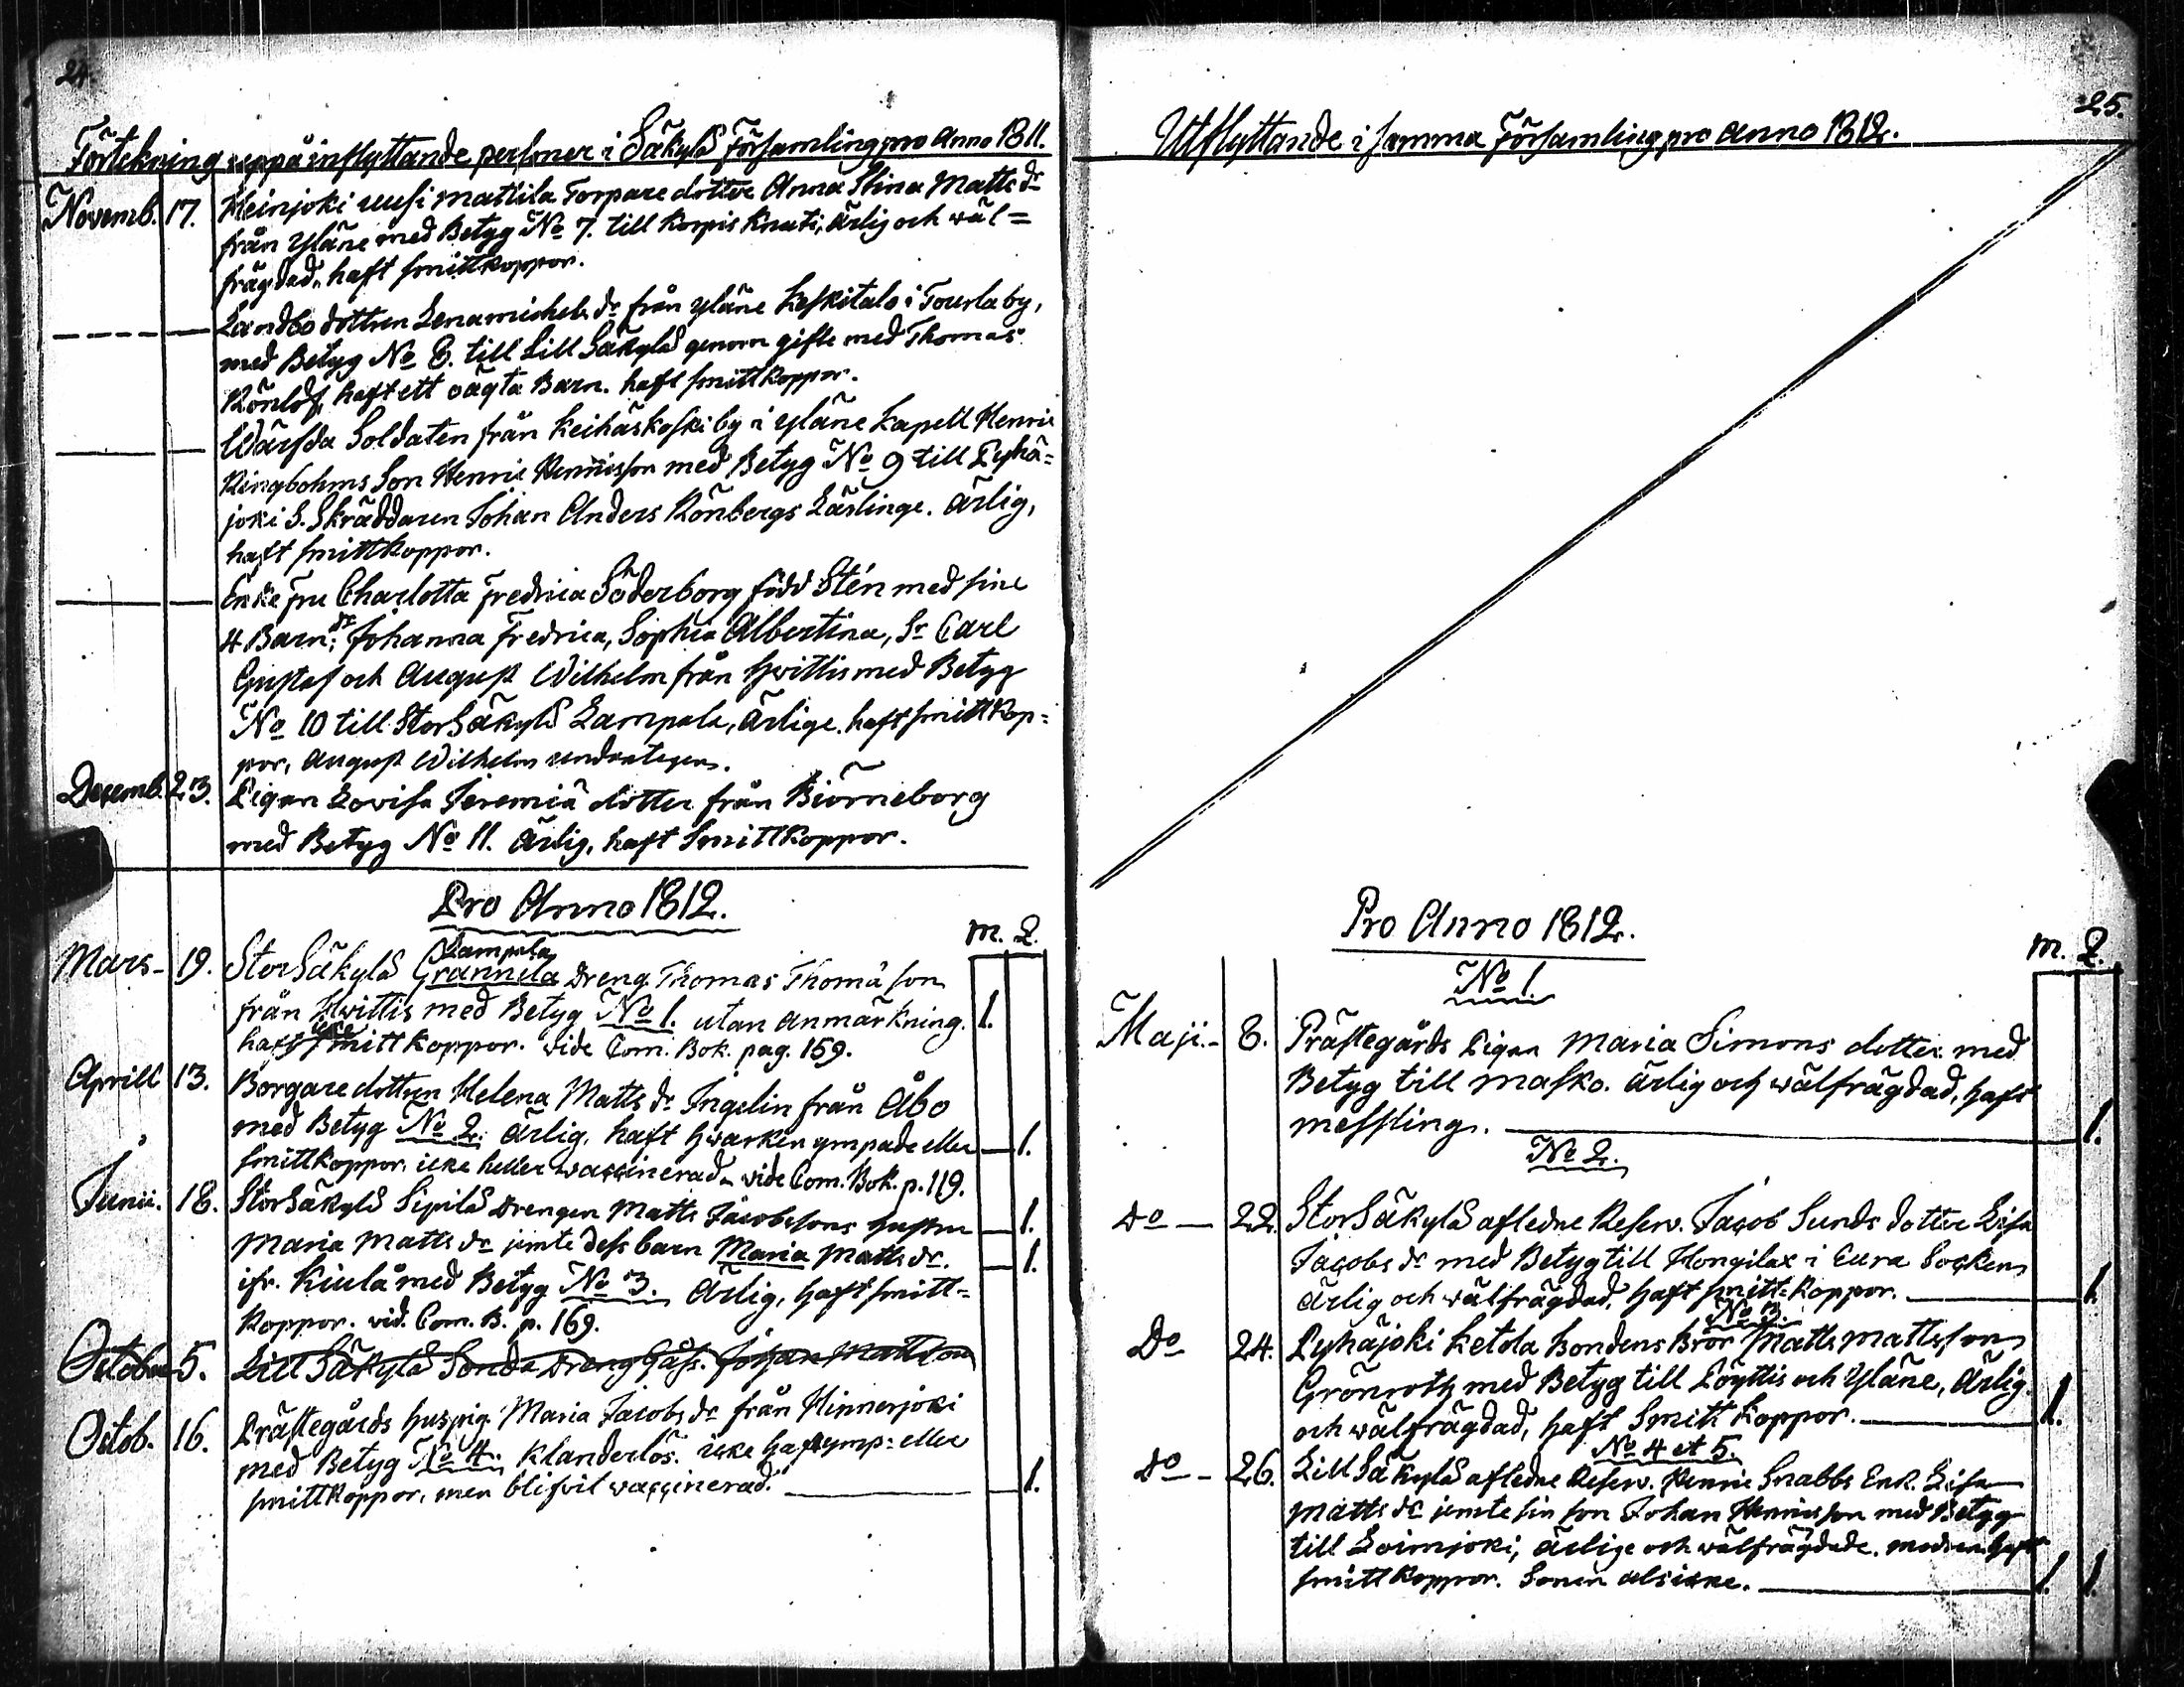 24.
Förtekning uppå inflyttande personer i Säkylä Församling pro Anno 1811.
Novemb. 17. Heinjoki uusi Mattila Torpare dotter Anna Stina Matts dr
från Yläne med Betyg No 7. till Korpis Knuti, ärlig och wäl=
frägdad, haft smittkoppor.
Landbo dottren Lena Michels dr från Yläne Keskitalo i Tourla by,
med Betyg No 8. till Lill Säkylä genom gifte med Thomas
Rönlöf, haft ett oägta Barn. haft smittkoppor.
Wärfda Soldaten från Keihäskoski by i Yläne Kapell Henric
Ringbohms Son Henric Henricsson med Betyg No 9 till Pyhä=
joki S. Skräddaren Johan Anders Rönbergs Lärlinge. Ärlig,
haft smittkoppor.
Enke fru Charlotta Fredrica Söderborg född Stén med sine
4 Barn: dr Johanna Fredrica, Sophia Albertina, Sr Carl
Gustaf och August Wilhelm från Hwittis med Betyg
No 10 till StorSäkylä Lampala, Ärlige. haft smittkop=
por, August Wilhelm undantagen.
Decemb. 23. Pigan Lovisa Jeremiä dotter från Biörneborg
med Betyg No 11. Ärlig, haft Smittkoppor.
Pro Anno 1812.
M. Q.
Lampola
Mars - 19. StorSäkylä Grannila Dreng Thomas Thomä son
från Hwittis med Betyg No 1. utan anmärkning. 1.
haft smittkoppor. vide Com. Bok. pag. 159.
Aprill 13. Borgare dottren Helena Matts dr Ingelin från Åbo
med Betyg No 2. Ärlig, haft hwarken ympade eller 1.
smittkoppor, icke heller waccinerad. vide Com. Bok. p. 119.
Junii. 18. StorSäkylä Sipilä Drengen Matts Jacobssons hustru 1.
Maria Matts dr jemte dess barn Maria Matts dr. 1.
ifr. Kiulå med Betyg No 3. Ärlig, haft smitt=
koppor. vid. Com. B. p. 169.
October 5. Lill Säkylä Sonda Dreng Gåss. Johan Mattsson
Octob. 16. Prästegårds huspig. Maria Jacobs dr från Hinnerjoki
med Betyg No 4. Klanderlös. icke haft ymp= eller
smittkoppor, men blifvit waccinerad. 1.
25.
Utflyttande i samma Församling pro anno 1812.
Pro Anno 1812.
M. Q.
No 1.
Maji. - 8. Prästegårds Pigan Maria Simons dotter med
Betyg till Masko. Ärlig och wälfrägdad, haft
messling. 1.
No 2.
Do - 22. StorSäkylä afledne Reserv. Jacob Sunds dotter Lisa
Jacobs dr med Betyg till Hongilax i Eura Socken
Ärlig och wälfrägdad, haft smitt=koppor. 1.
No 3.
Do 24. Pyhäjoki Ketola Bondens Bror Matts Mattsson
Grönroth med Betyg till Pöyttis och Yläne, Ärlig
och wälfrägdad, haft Smitt koppor. 1.
No 4 et 5.
Do - 26. Lill Säkylä afledne Reserv. Henric Snabbs Enk. Lisa
Matts dr jemte sin son Johan Henricsson med Betyg
till Loimjoki, Ärlige och wälfrägdade. modren haft
smittkoppor. Sonen alsicke. 1. 1.